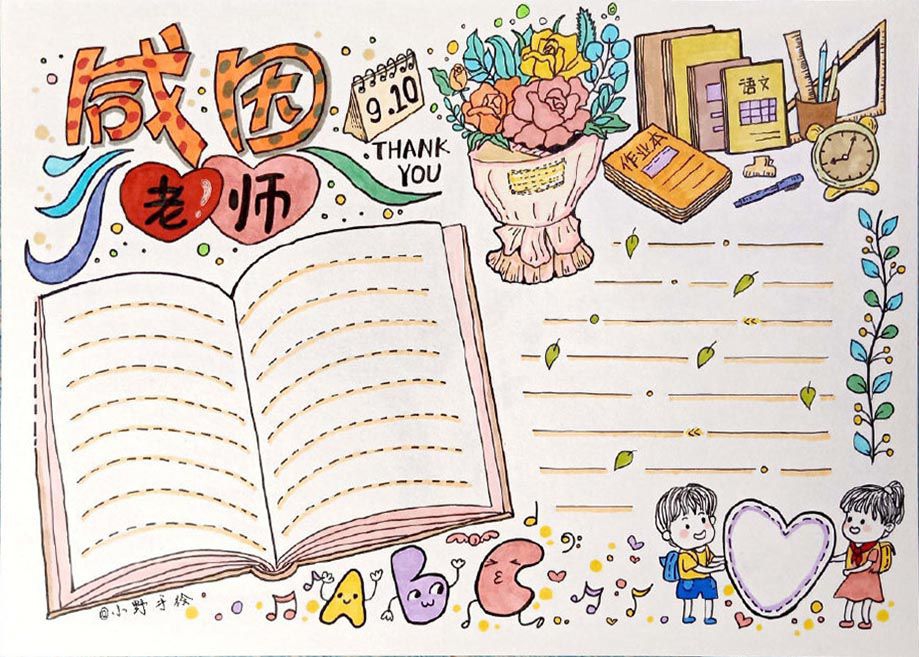 感恩
老师
9.10
THANK
YOU
语文
作业本
AbC
@小野手绘